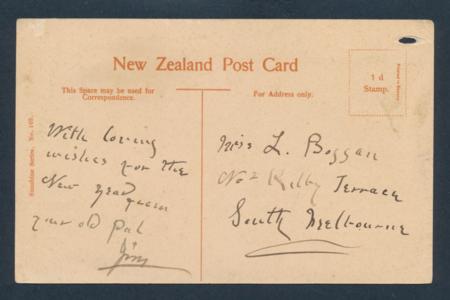 New Zealand Post Card
This Space may be used for
Correspondence.
For Address only.
1 d
Stamp.
With loving
wishes for the
New Year from
your old pal
Jim
Miss L. Boggan
No 2 Kilby Terrace
South Melbourne
Sunshine Series. No.